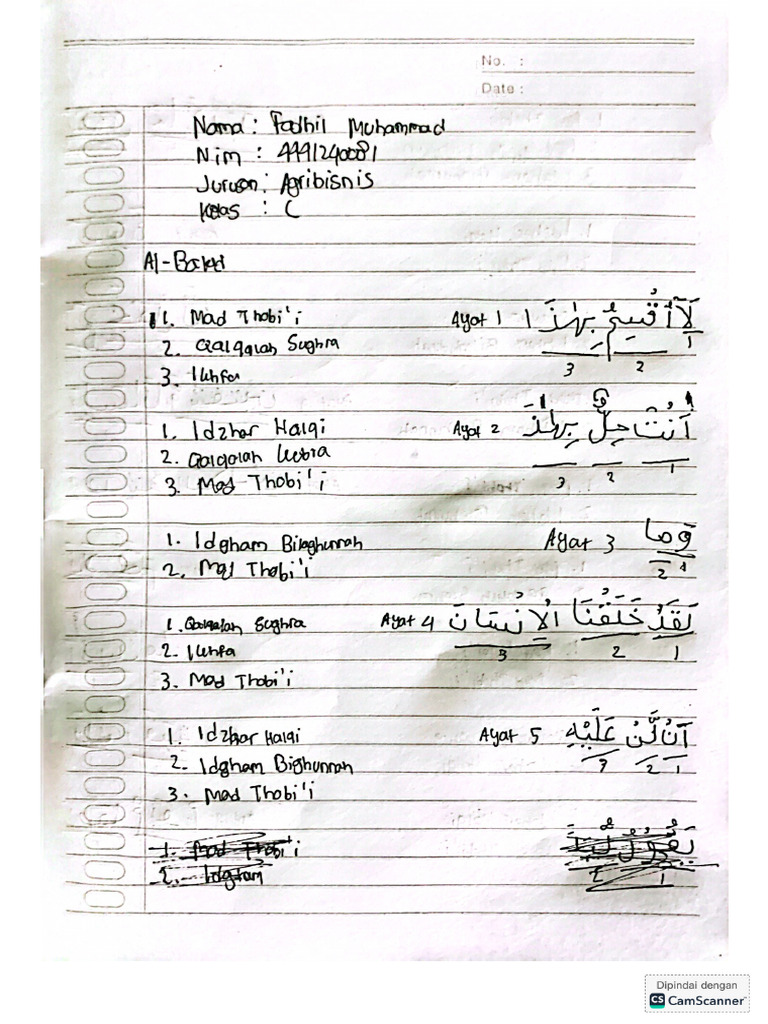 No. :
Date :
Nama : Fadhil Muhammad
Nim : 4441240081
Jurusan : Agribisnis
Kelas : C
Al-Balad
1. Mad Thobi'i Ayat 1 لَآ أُقْسِمُ بِهٰذَا
2. Qalqalah Sughra 1
3. Ikhfa 3 2
1. Idzhar Halqi Ayat 2 أَنْتَ حِلٌّ بِهٰذَ
2. Qalqalah Kubra
3. Mad Thobi'i 3 2 1
1. Idgham Bilaghunnah Ayat 3 وَما
2. Mad Thobi'i 2 1
1. Qalqalah Sughra Ayat 4 لَقَدْ خَلَقْنَا الْاِنْسَانَ
2. Ikhfa 3 2 1
3. Mad Thobi'i
1. Idzhar Halqi Ayat 5 اَنْ لَّنْ عَلَيْهِ
2. Idgham Bighunnah 3 2 1
3. Mad Thobi'i
1. Mad Thobi'i
2. Idgham 2 1
Dipindai dengan
CS CamScanner